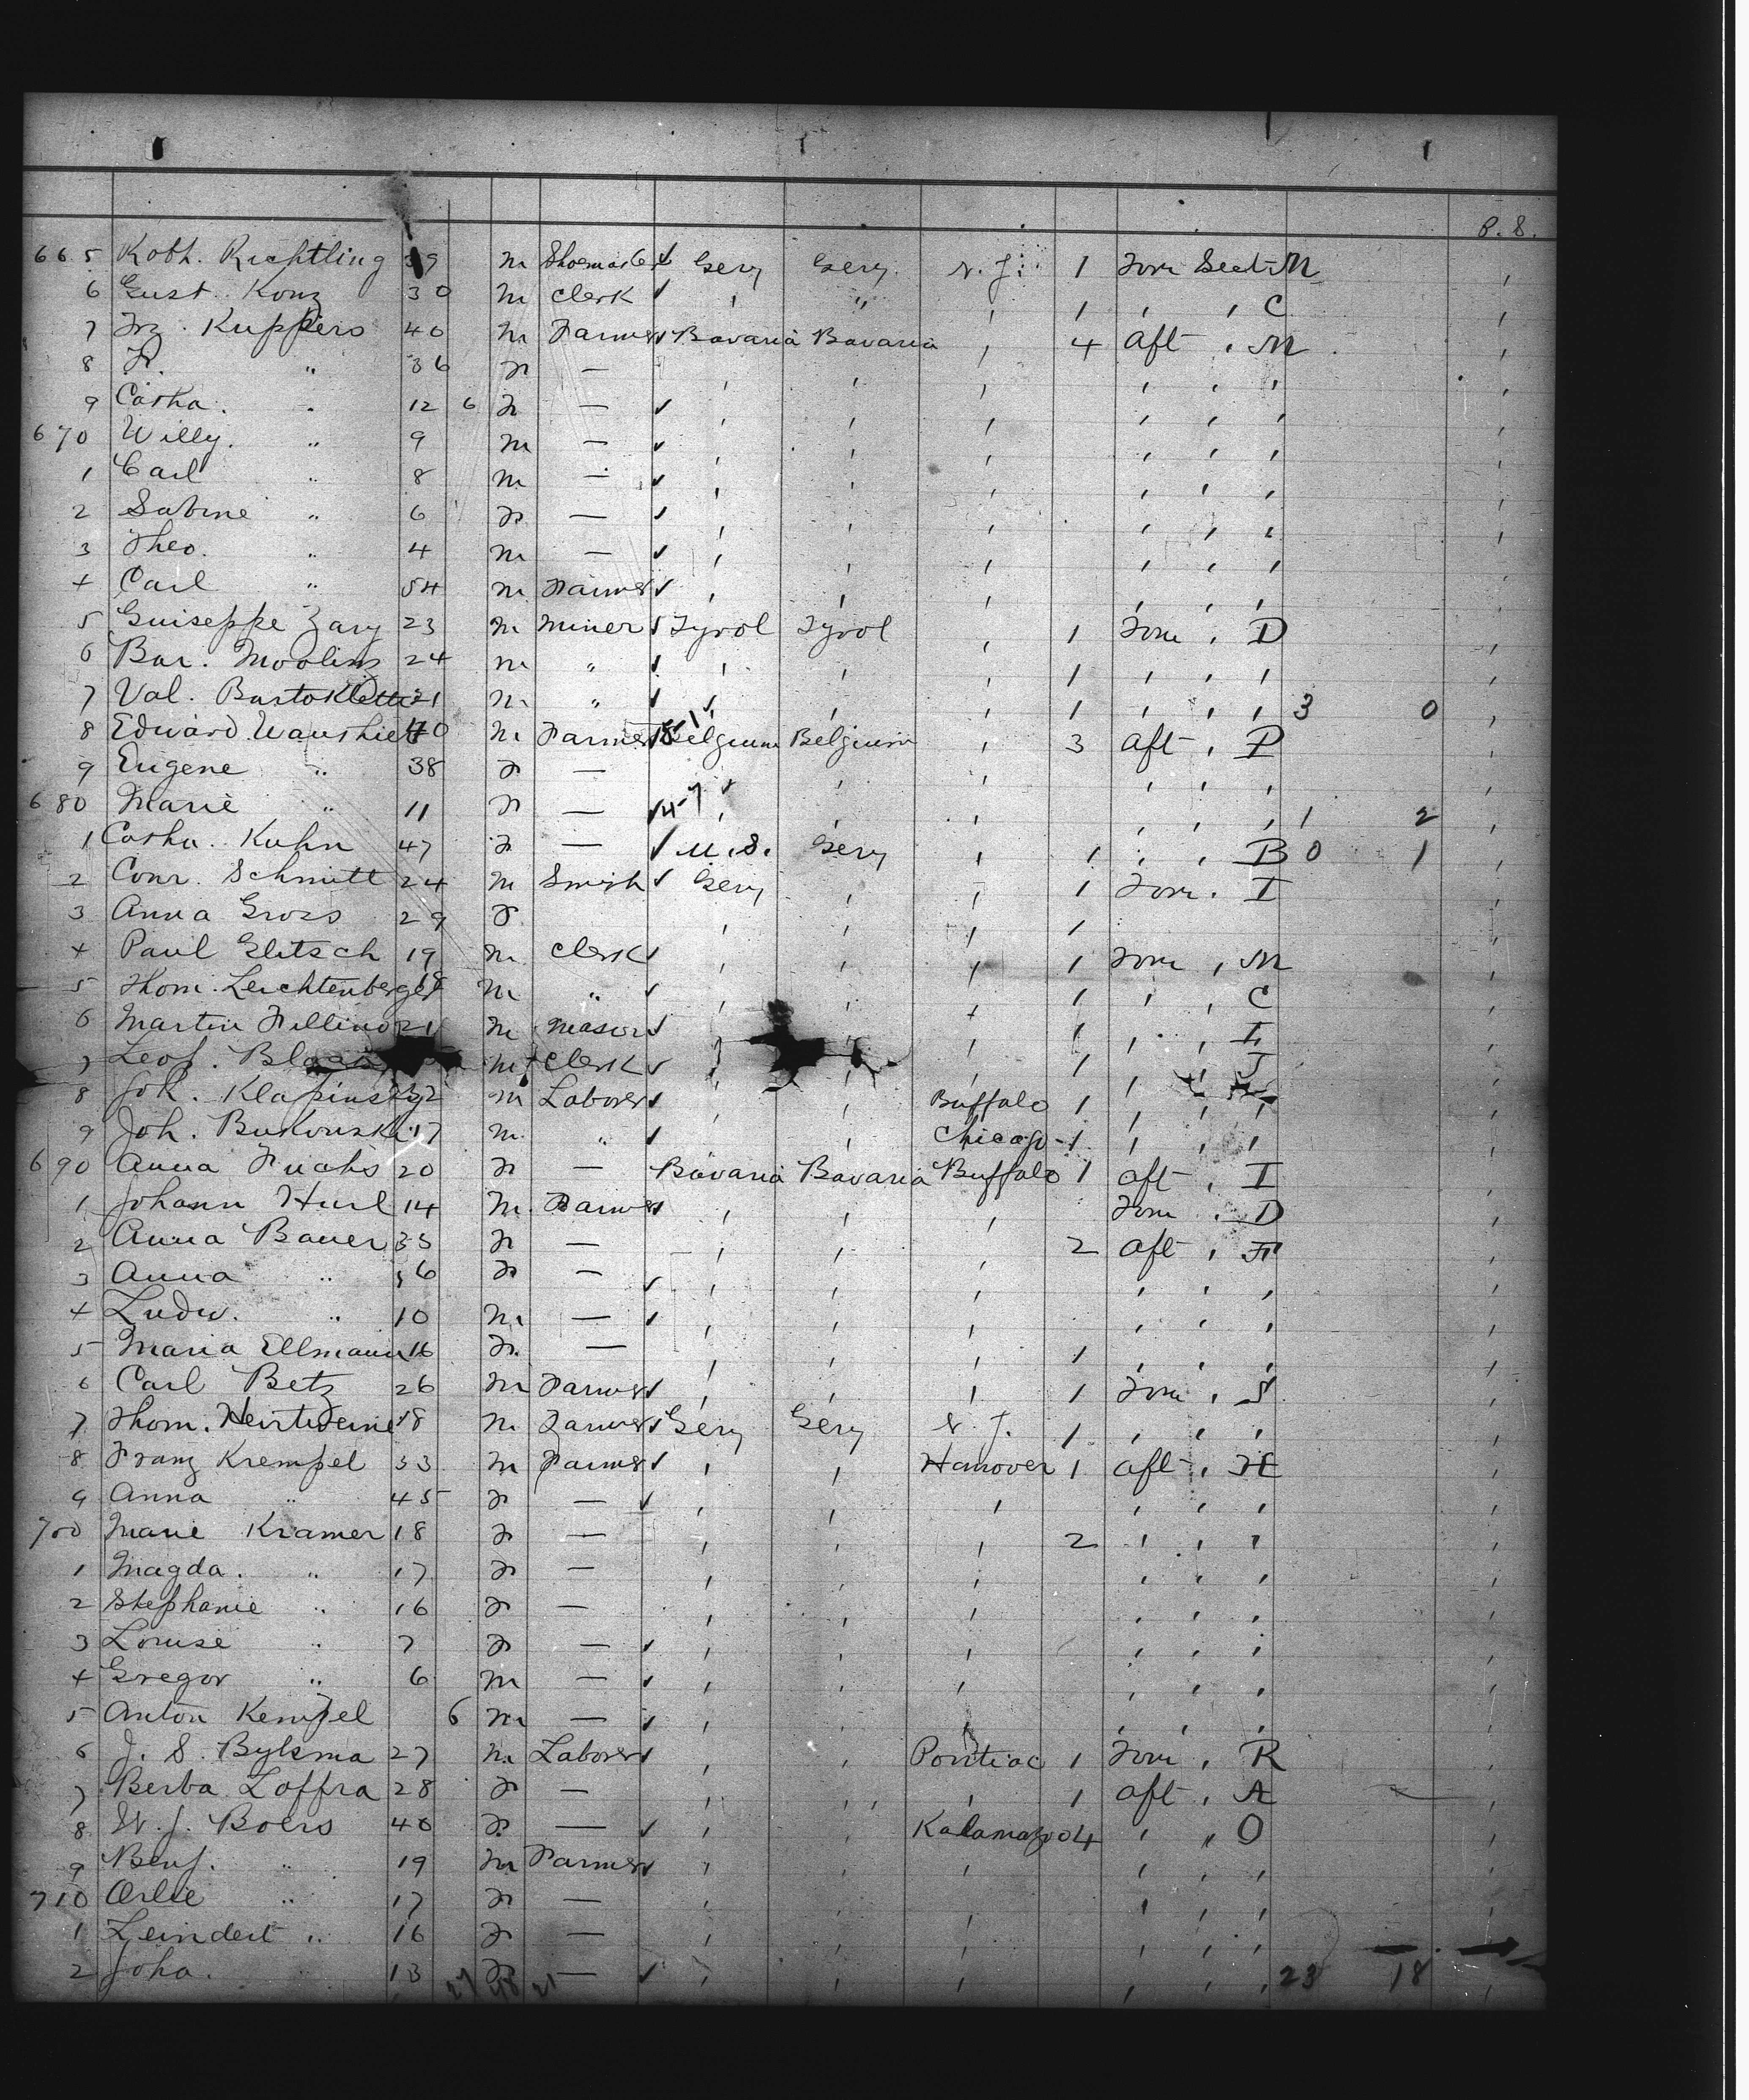 P. S.
665 Koth. Ruchtling 39 m Shoemaker Gery Gery. N. J. 1 Forw Sect M
6 Gust. Konz 30 m Clerk ' " ' 1 ' ' C
7 Frz. Kuppers 40 m Farmer Bavaria Bavaria ' 4 Aft ' M
8 F. " 36 f — ' ' ' ' ' '
9 Catha. " 12 6 f — ' ' ' ' ' '
670 Willy. " 9 m — ' ' ' ' ' '
1 Carl " 8 m — ' ' ' ' ' '
2 Sabine " 6 f — ' ' ' ' ' '
3 Theo. " 4 m — ' ' ' ' ' '
4 Carl " 54 m Farmer ' ' ' ' ' '
5 Guiseppe Zary 23 m Miner Tyrol Tyrol ' 1 Forw ' D
6 Bar. Moolins 24 m " ' ' ' 1 ' ' '
7 Val. Bartokletti 21 m " ' ' ' 1 ' ' ' 3 0
8 Edward Wauthier 40 m Farmer Belgium Belgium ' 3 Aft ' P
9 Eugene " 38 f — ' ' ' ' ' '
680 Marie " 11 f — ' ' ' ' ' ' 1 2
1 Catha. Kuhn 47 f — U. S. Gery ' 1 ' ' B 0 1
2 Conr. Schmitt 24 m Smith Gery ' ' 1 Forw. I
3 Anna Gross 29 f ' ' ' 1
4 Paul Glitsch 19 m Clerk ' ' ' 1 Forw ' M
5 Thom. Leichtenberger 18 m " ' ' ' 1 ' ' C
6 Martin Fillino 21 m Mason ' ' ' 1 ' ' I
7 Leop. m Clerk ' ' ' 1 ' ' J
8 Joh. Klapinsky 22 m Laborer ' ' Buffalo 1 ' ' '
9 Joh. Bukouski 17 m " ' ' Chicago 1 ' ' '
690 Anna Fuchs 20 f — Bavaria Bavaria Buffalo 1 Aft ' I
1 Johann Hurl 14 m Farmer ' ' ' Forw ' D
2 Anna Bauer 33 f — ' ' ' 2 Aft ' F
3 Anna " 6 f — ' ' ' ' ' '
4 Ludw. " 10 m — ' ' ' ' ' '
5 Maria Ellmann 16 f — ' ' ' 1 ' ' '
6 Carl Betz 26 m Farmer ' ' ' 1 Forw ' S
7 Thom. 18 m Farmer Gery Gery N. J. 1 ' ' '
8 Franz Krempel 33 m Farmer ' ' Hanover 1 Aft ' H
9 Anna " 45 f — ' ' ' ' ' '
700 Marie Kramer 18 f — ' ' ' 2 ' ' '
1 Magda. " 17 f — ' ' ' ' ' '
2 Stephanie " 16 f — ' ' ' ' ' '
3 Louise " 7 f — ' ' ' ' ' '
4 Gregor " 6 m — ' ' ' ' ' '
5 Anton Kempel 6 m — ' ' ' ' ' '
6 J. S. Bylsma 27 m Laborer ' ' Pontiac 1 Forw ' R
7 Berba Loffra 28 f — ' ' ' 1 Aft ' A
8 W. J. Boers 40 f — ' ' Kalamazoo 4 ' " O
9 Benj. " 19 m Farmer ' ' ' ' ' '
710 Orlie " 17 f — ' ' ' ' ' '
1 Leindert " 16 f — ' ' ' ' ' '
2 Joha. " 13 f — ' ' ' ' ' ' 23 18